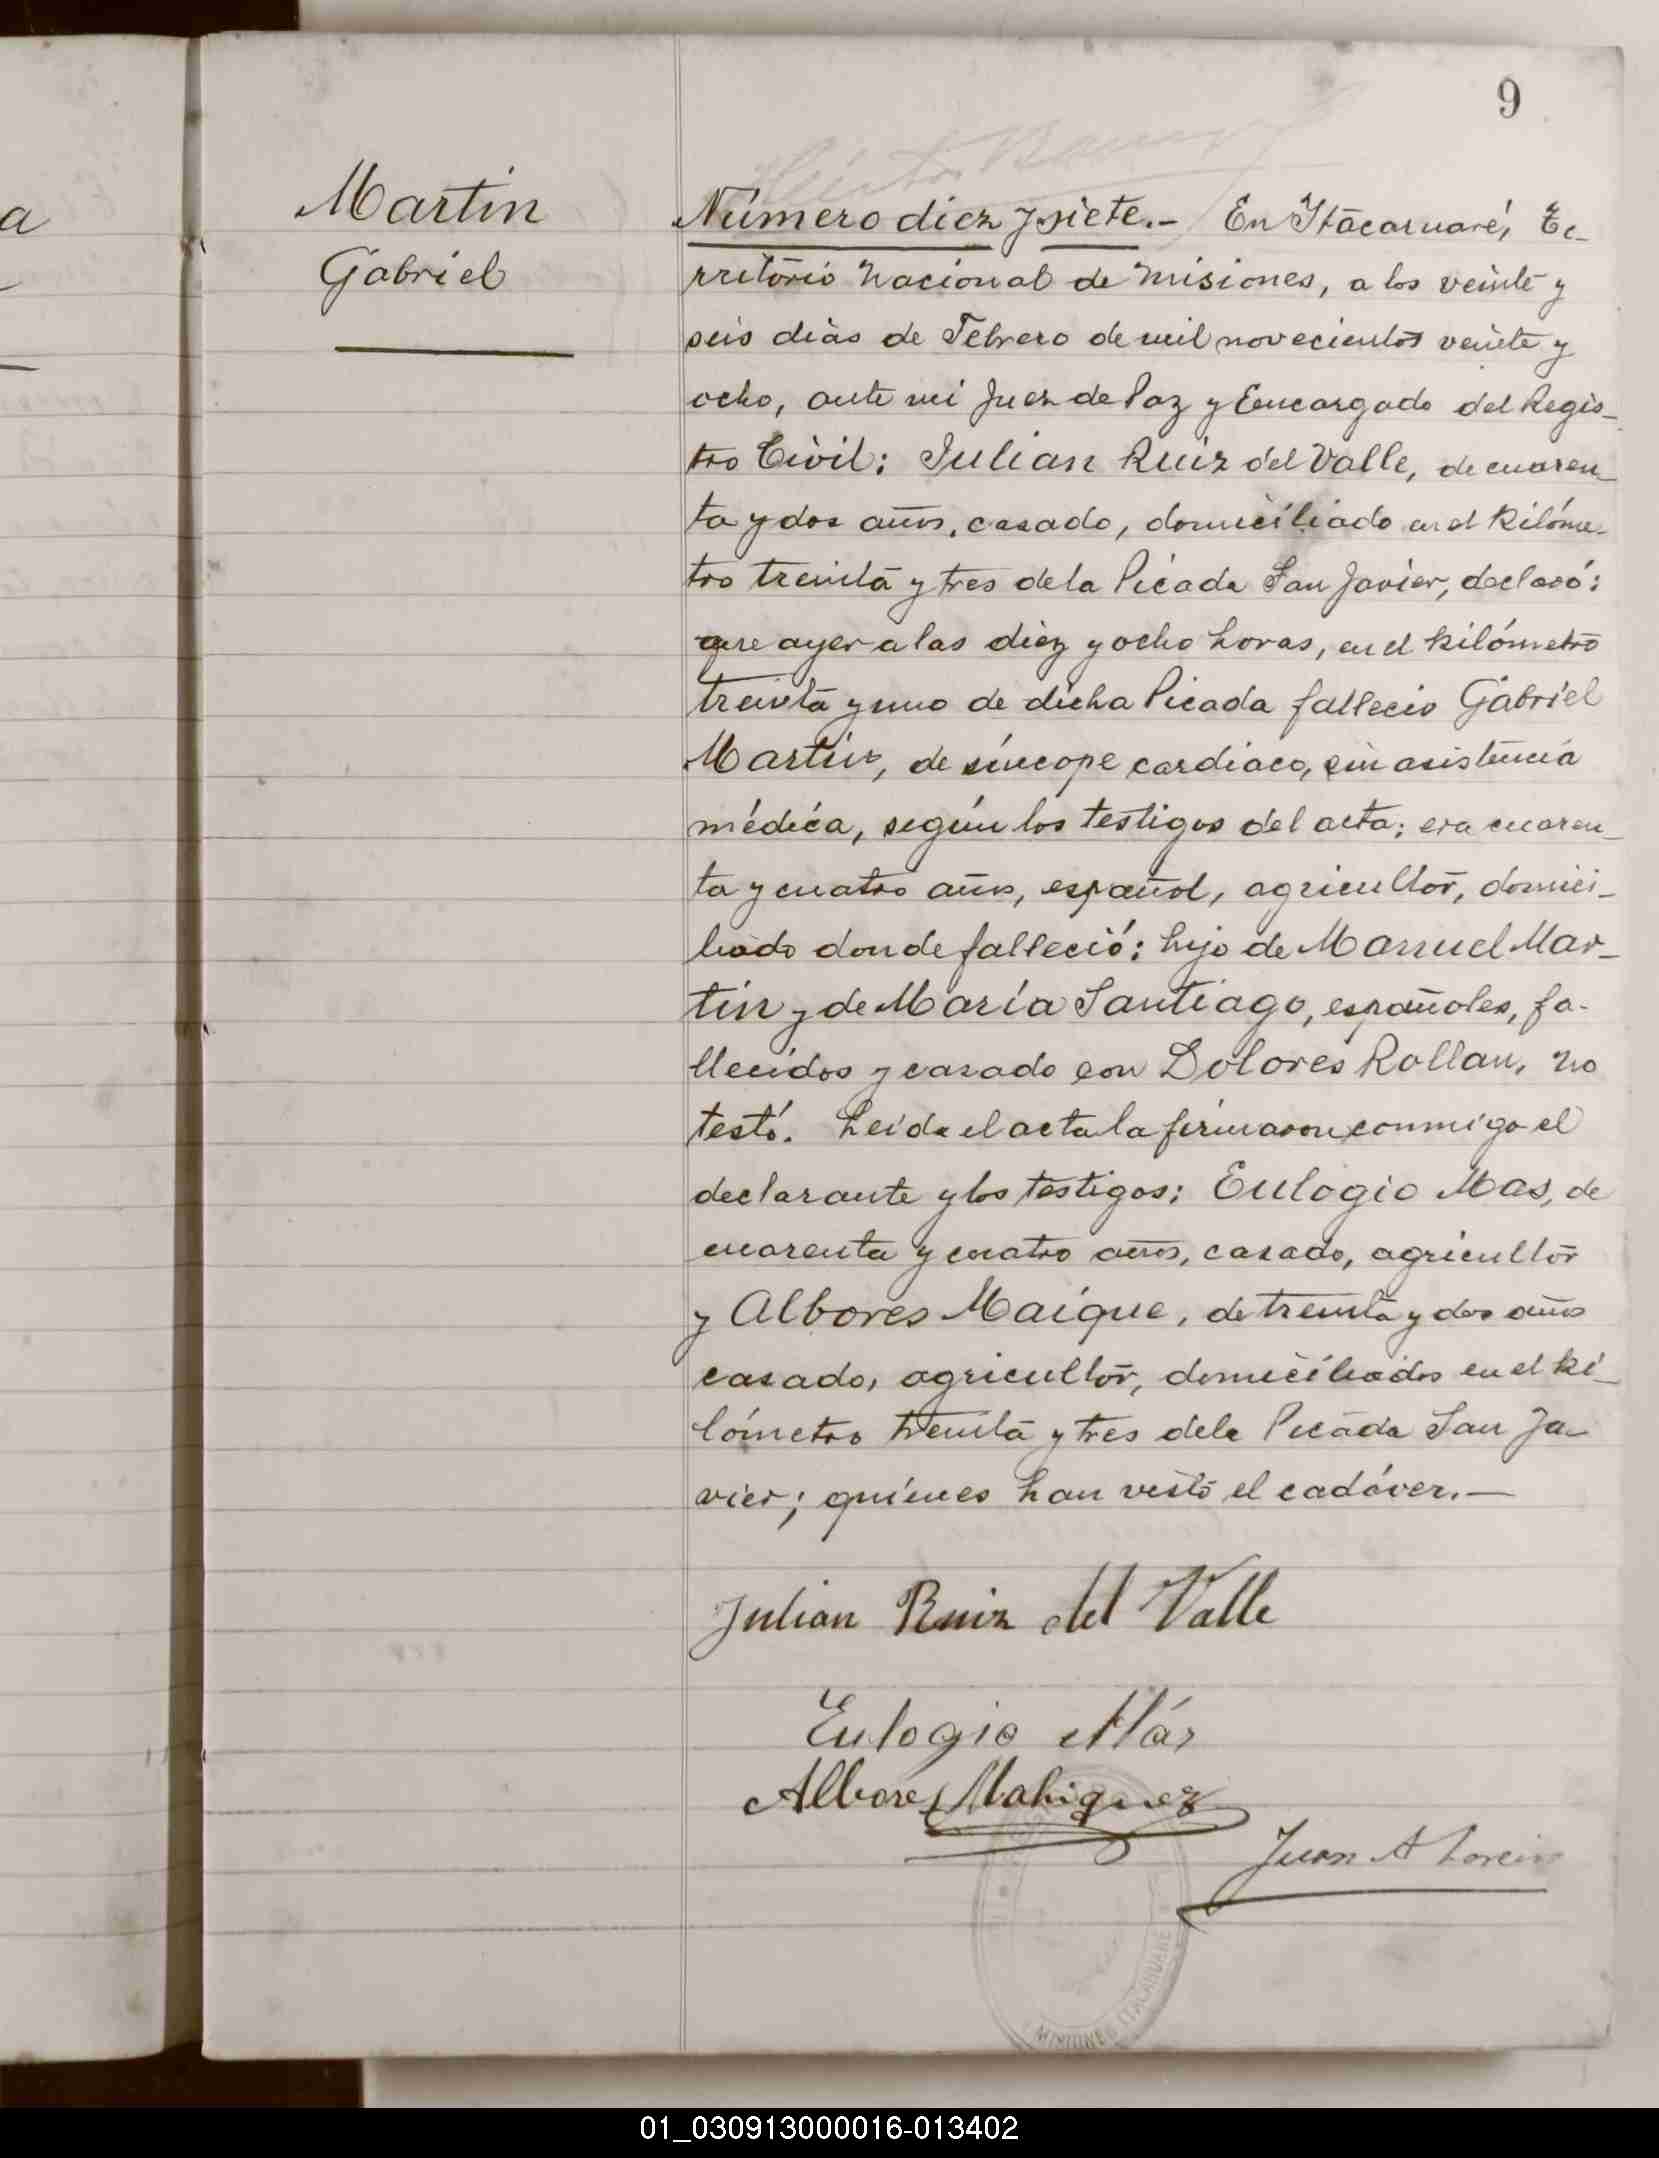 9
Martin
Gabriel
Número diez y siete.- En Itacaruaré, Te-
rritorio Nacional de Misiones, a los veinte y
seis dias de Febrero de mil novecientos veinte y
ocho, ante mi Juez de Paz y Encargado del Regis-
tro Civil: Julian Ruiz del Valle, de cuaren-
ta y dos años, casado, domiciliado en el Kilóme-
tro treinta y tres de la Picada San Javier, declaró:
que ayer a las diez y ocho horas, en el kilómetro
treinta y uno de dicha Picada fallecio Gabriel
Martin, de síncope cardiaco, sin asistencia
médica, según los testigos del acta; era cuaren-
ta y cuatro años, español, agricultor, domici-
liado donde falleció: hijo de Manuel Mar-
tin y de María Santiago, españoles, fa-
llecidos y casado con Dolores Rollan, no
testó. Leida el acta la firmaron conmigo el
declarante y los testigos: Eulogio Mas, de
cuarenta y cuatro años, casado, agricultor
y Albores Maique, de treinta y dos años
casado, agricultor, domiciliados en el ki-
lómetro treinta y tres dela Picada San Ja-
vier; quienes han visto el cadáver.-
Julian Ruiz del Valle
Eulogio Más
Albores Mahiquez
Juan A
MISIONES ITACARUARE
01_030913000016-013402